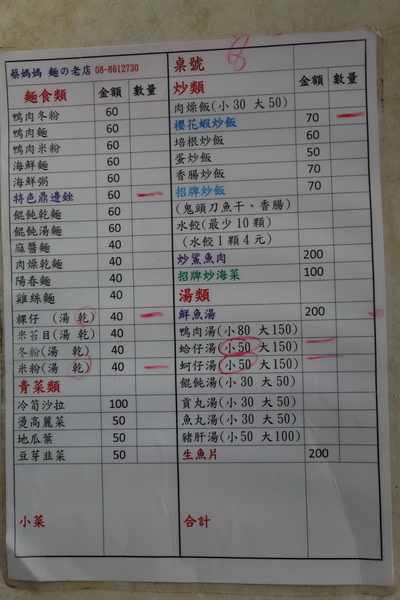 蔡媽媽 麵の老店 08-8612730
麵食類 金額 數量
鴨肉冬粉 60
鴨肉麵 60
鴨肉米粉 60
海鮮麵 60
海鮮粥 60
特色鼎邊銼 60 一
餛飩乾麵 60
餛飩湯麵 60
麻醬麵 40
肉燥乾麵 40
陽春麵 40
雞絲麵 40
粿仔 (湯 乾) 40 一
米苔目(湯 乾) 40
冬粉(湯 乾) 40
米粉(湯 乾) 40 一
青菜類
冷筍沙拉 100
燙高麗菜 50
地瓜葉 50
豆芽韭菜 50
小菜
桌號 8
炒類 金額 數量
肉燥飯(小30 大50)
櫻花蝦炒飯 70 一
培根炒飯 60
蛋炒飯 50
香腸炒飯 70
招牌炒飯 70
(鬼頭刀魚干、香腸)
水餃(最少10顆)
(水餃1顆4元)
炒鯊魚肉 200
招牌炒海菜 100
湯類
鮮魚湯 200
鴨肉湯(小80 大150)
蛤仔湯(小50 大150) 一
蚵仔湯(小50 大150) 一
餛飩湯(小30 大50)
貢丸湯(小30 大50)
魚丸湯(小30 大50)
豬肝湯(小50 大100)
生魚片 200
合計